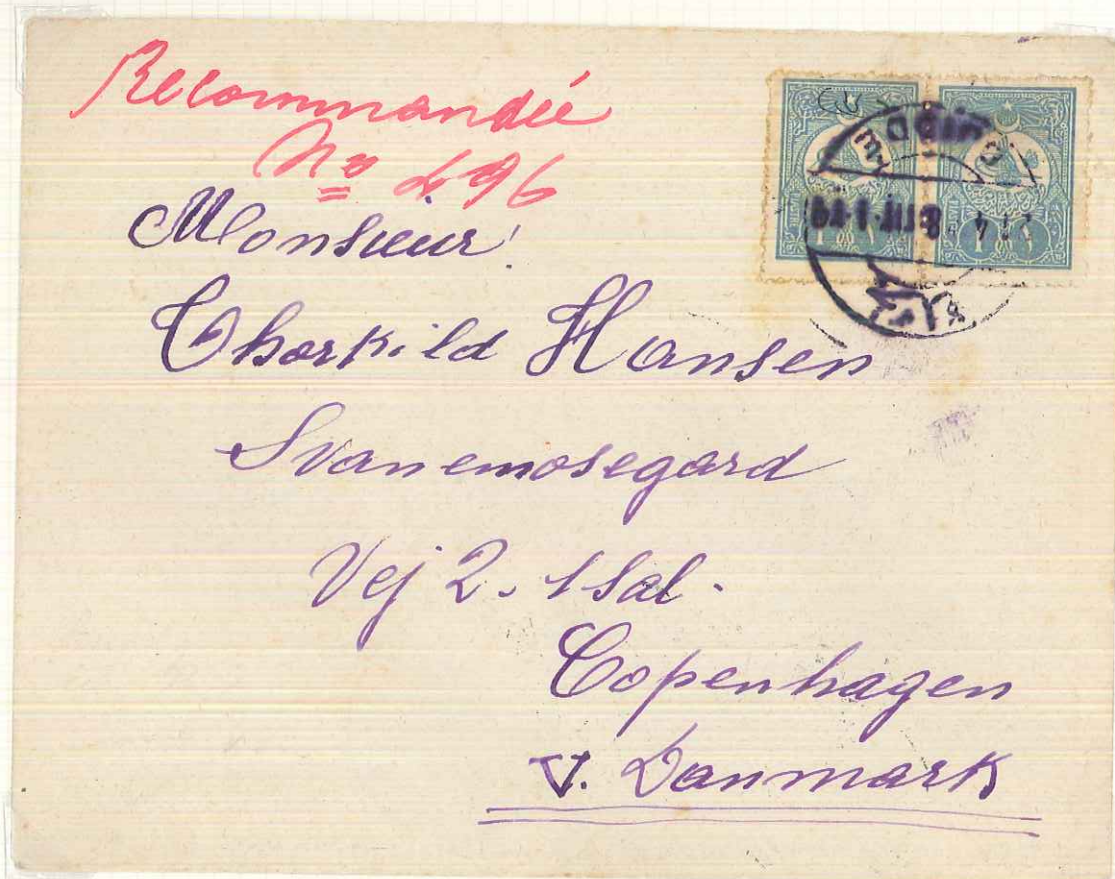 Recommandée
No 496
Monsieur!
Thorkild Hansen
Svanemosegard
Vej 2. 1 Sal.
Copenhagen
V. Danmark